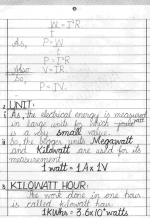 W = I²R
t
As, P = W
t
P = I²R
Also V = IR
So,
P = IV.
2. UNIT:
As, the electrical energy is measured
in large units for which watt
is a very small value.
So, the bigger units Megawatt
and Kilowatt are used for its
measurement.
1 watt = 1A x 1V
3. KILOWATT HOUR:
The work done in one hour
is called kilowatt hour.
1KWhr = 3.6x10⁶ watts